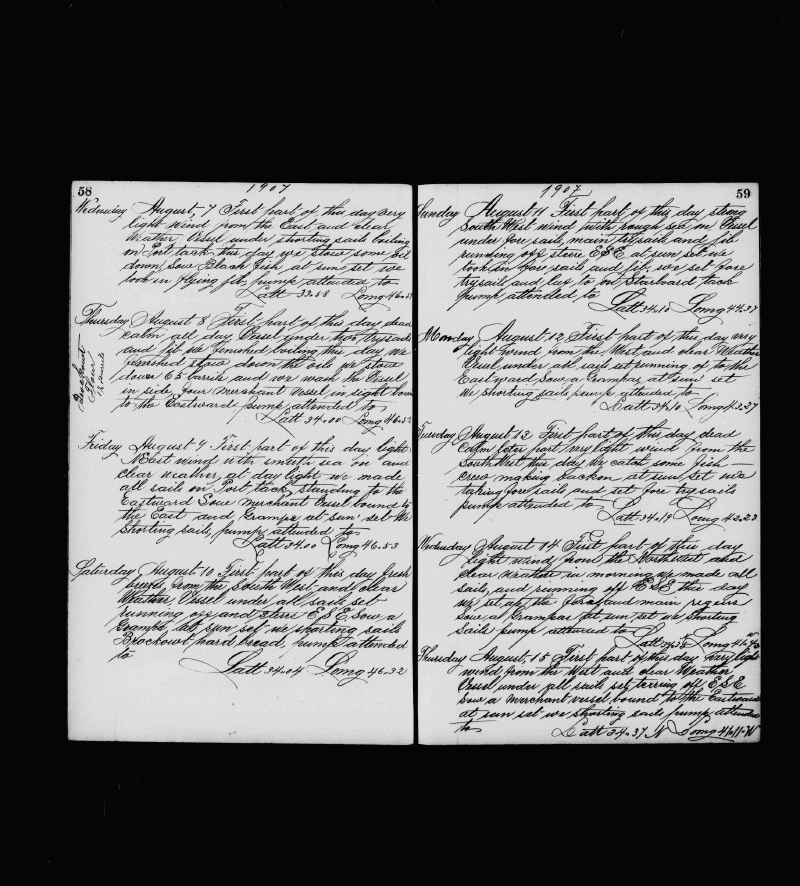 58
1907
Wednsday August, 7 First part of this day very
light wind from the East and clear
Weather Vessel under shorting sails boiling
on Port tack this day we stow some oil
down, Sow Black fish at sun set we
took in flying jib, pump attended to
Latt 33.58 Long 46.51
Thursday August 8 First part of this day dead
calm all day Vessel under two trysails
and jib we finished boiling this day we
finnished stow down the oile we stow
down 65 barrils and we wash the Vessel
in side, four merchant vessel in sight bound
to the Eastward pump attended to
Latt 34.00 Long 46.52
Brockout
Flour
Barrils
Friday August 9 First part of this day light
N East wind with smuth sea on and
clear weather, at day light we made
all sails on Port tack, standing to the
Eastward Sow Merchant Vessel bound to
the East and Grampe at sun set We
Shorting sails, pump attended to
Latt 34.00 Long 46.53
Saturday August 10 First part of this day fresh
breeze, from the South West and clear
Weather Vessel under all sails set
running off and stere E.S.E. Sow a
Grampe, at sun set we shorting sails
Brockowt hard bread, pump attended
to
Latt 34.04 Long 46.32
59
1907
Sunday August 11 First part of this day strong
South West wind with rough sea on Vessel
under fore sails, main trysails and jib
running off steere ESE at sun set we
took in fore sails and jib, we set fore
trysails and luf to on Starboard tack
pump attended to
Latt 34.10 Long 44.37
Monday August 12 First part of this day very
light wind from the West and clear Weather
Vessel under all sails set running of to the
Eastward Sow a Grampas at sun set
We shorting sails pump attended to
Latt 34.10 Long 43.37
Tuesday August 13 First part of this day dead
Calm later part, very light wind from the
South West this day We catch some fish —
crew making backon at sun set we
taking fore sails and set fore try sails
pump attended to
Latt 34.14 Long 43.23
Wednesday August 14 First part of this day
light wind from the Northwest and
clear weather in morning we made all
sails, and running off ESE this day
we set up the fore and main
Sow a Grampas at sun set we Shorting
Sails pump attended to
Latt Long
Thursday August, 15 First part of this day very light
wind, from the West and clear Weather
Vessel under all sails set, terring off ESE
Sow a Merchant vessel bound to the Eastward
at sun set we shorting sails pump attended
to
Latt 34.37 N Long 41.11-W